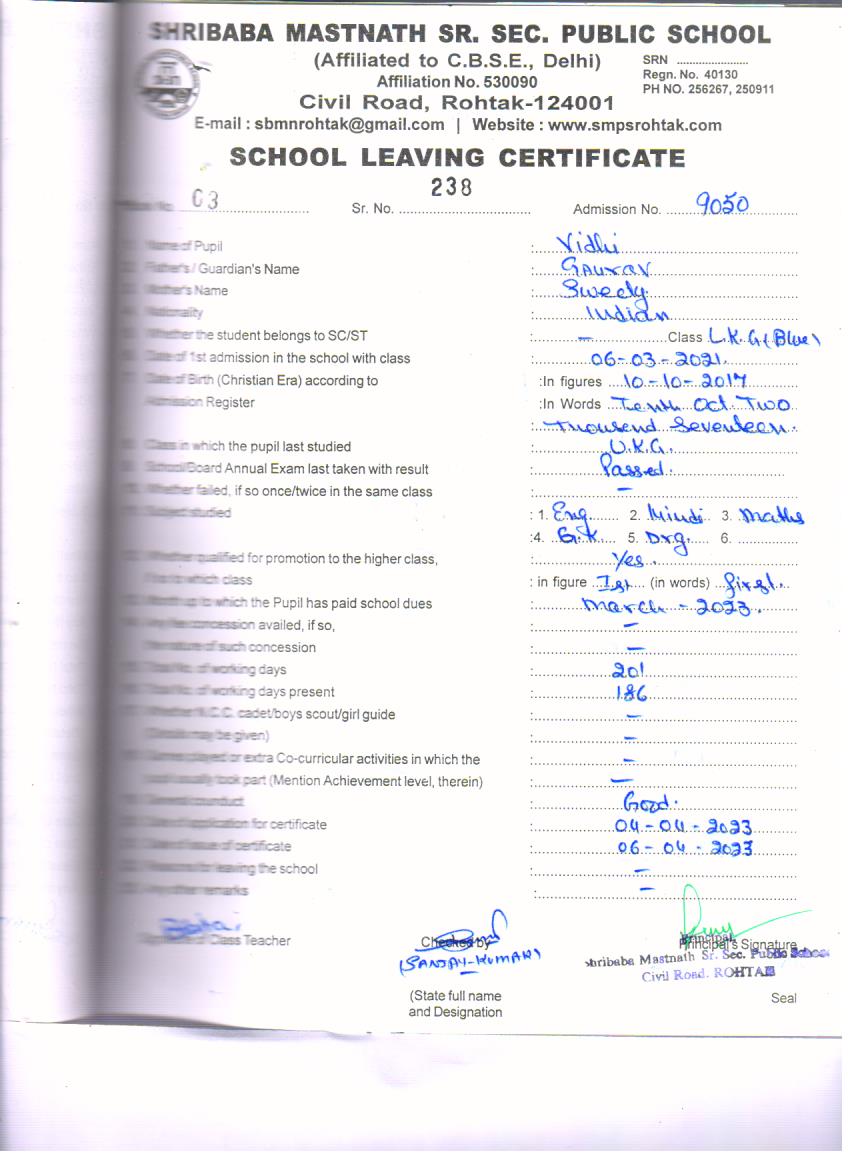 SHRIBABA MASTNATH SR. SEC. PUBLIC SCHOOL
(Affiliated to C.B.S.E., Delhi)
SRN ........................
Affiliation No. 530090
Regn. No. 40130
Civil Road, Rohtak-124001
PH NO. 256267, 250911
E-mail : sbmnrohtak@gmail.com | Website : www.smpsrohtak.com
SCHOOL LEAVING CERTIFICATE
No. 03 Sr. No. 238 Admission No. 9050
Name of Pupil : Vidhi
Father's / Guardian's Name : Gaurav
Mother's Name : Sweety
Nationality : Indian
Whether the student belongs to SC/ST : – Class L.K.G (Blue)
Date of 1st admission in the school with class : 06-03-2021
Date of Birth (Christian Era) according to :In figures 10-10-2017
Admission Register :In Words Tenth Oct Two
: Thousend Seventeen.
Class in which the pupil last studied : U.K.G.
School/Board Annual Exam last taken with result : Passed.
Whether failed, if so once/twice in the same class : –
Subject studied : 1. Eng 2. Hindi 3. Maths
:4. G.K 5. Drg. 6.
Whether qualified for promotion to the higher class, : Yes.
if so to which class : in figure Ist (in words) first.
Month up to which the Pupil has paid school dues : March - 2023.
Any fee concession availed, if so, : –
the nature of such concession : –
Total No. of working days : 201
Total No. of working days present : 186
Whether N.C.C. cadet/boys scout/girl guide : –
(Details may be given) : –
Games played or extra Co-curricular activities in which the : –
pupil usually took part (Mention Achievement level, therein) : –
General counduct : Good.
Date of application for certificate : 04-04-2023
Date of issue of certificate : 06-04-2023
Reasons for leaving the school : –
Any other remarks : –
Signature of Class Teacher Checked by Principal's Signature
Principal
(SANJAY-KUMAR) Shribaba Mastnath Sr. Sec. Public School
Civil Road. ROHTAK
(State full name Seal
and Designation